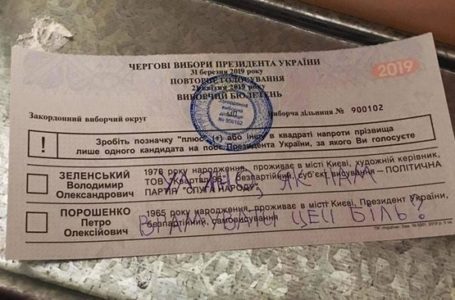 ЧЕРГОВІ ВИБОРИ ПРЕЗИДЕНТА УКРАЇНИ
31 березня 2019 року
ПОВТОРНЕ ГОЛОСУВАННЯ
2019
21 квітня 2019 року
ВИБОРЧИЙ БЮЛЕТЕНЬ
Закордонний виборчий округ
Виборча дільниця № 900102
№ 900102
! Зробіть позначку "плюс" (+) або іншу в квадраті напроти прізвища
лише одного кандидата на пост Президента України, за якого Ви голосуєте
ЗЕЛЕНСЬКИЙ
Володимир
Олександрович
1978 року народження, проживає в місті Києві, художній керівник,
ТОВ "Квартал 95", безпартійний, суб'єкт висування – ПОЛІТИЧНА
ПАРТІЯ "СЛУГА НАРОДУ"
ЯК НАМ
ПОРОШЕНКО
Петро
Олексійович
1965 року народження, проживає в місті Києві, Президент України,
безпартійний, самовисування
ЦЕЙ БІЛЬ?